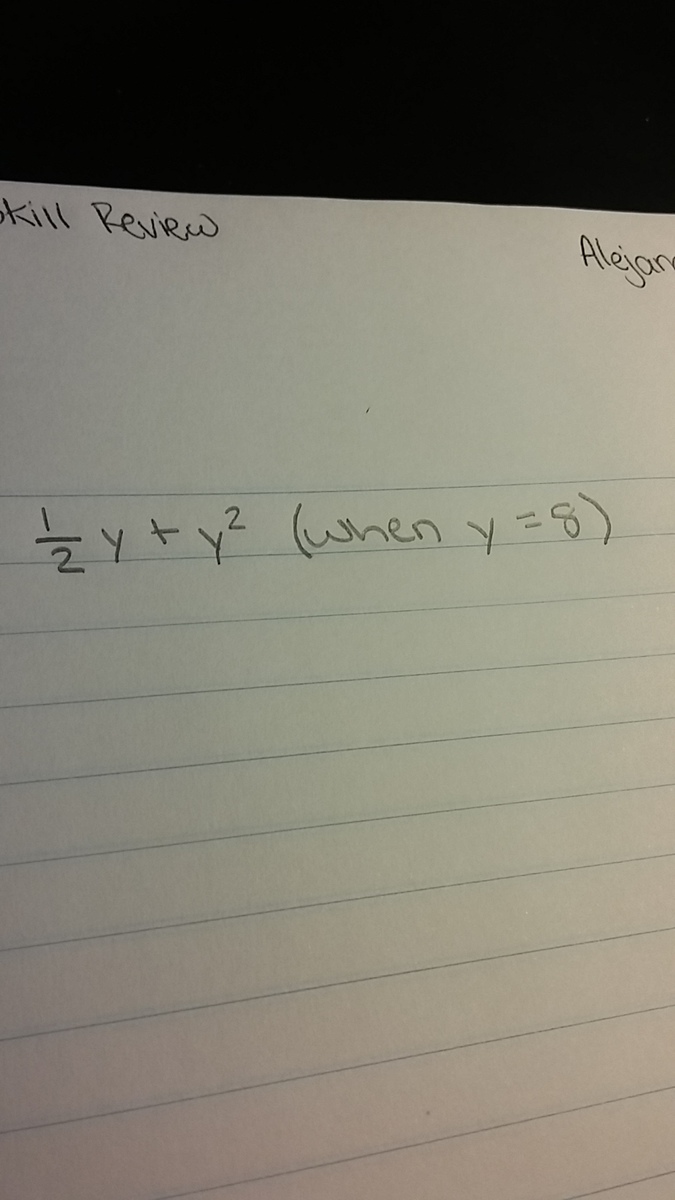 Skill Review
Alejan
1/2 y + y² (when y = 8)